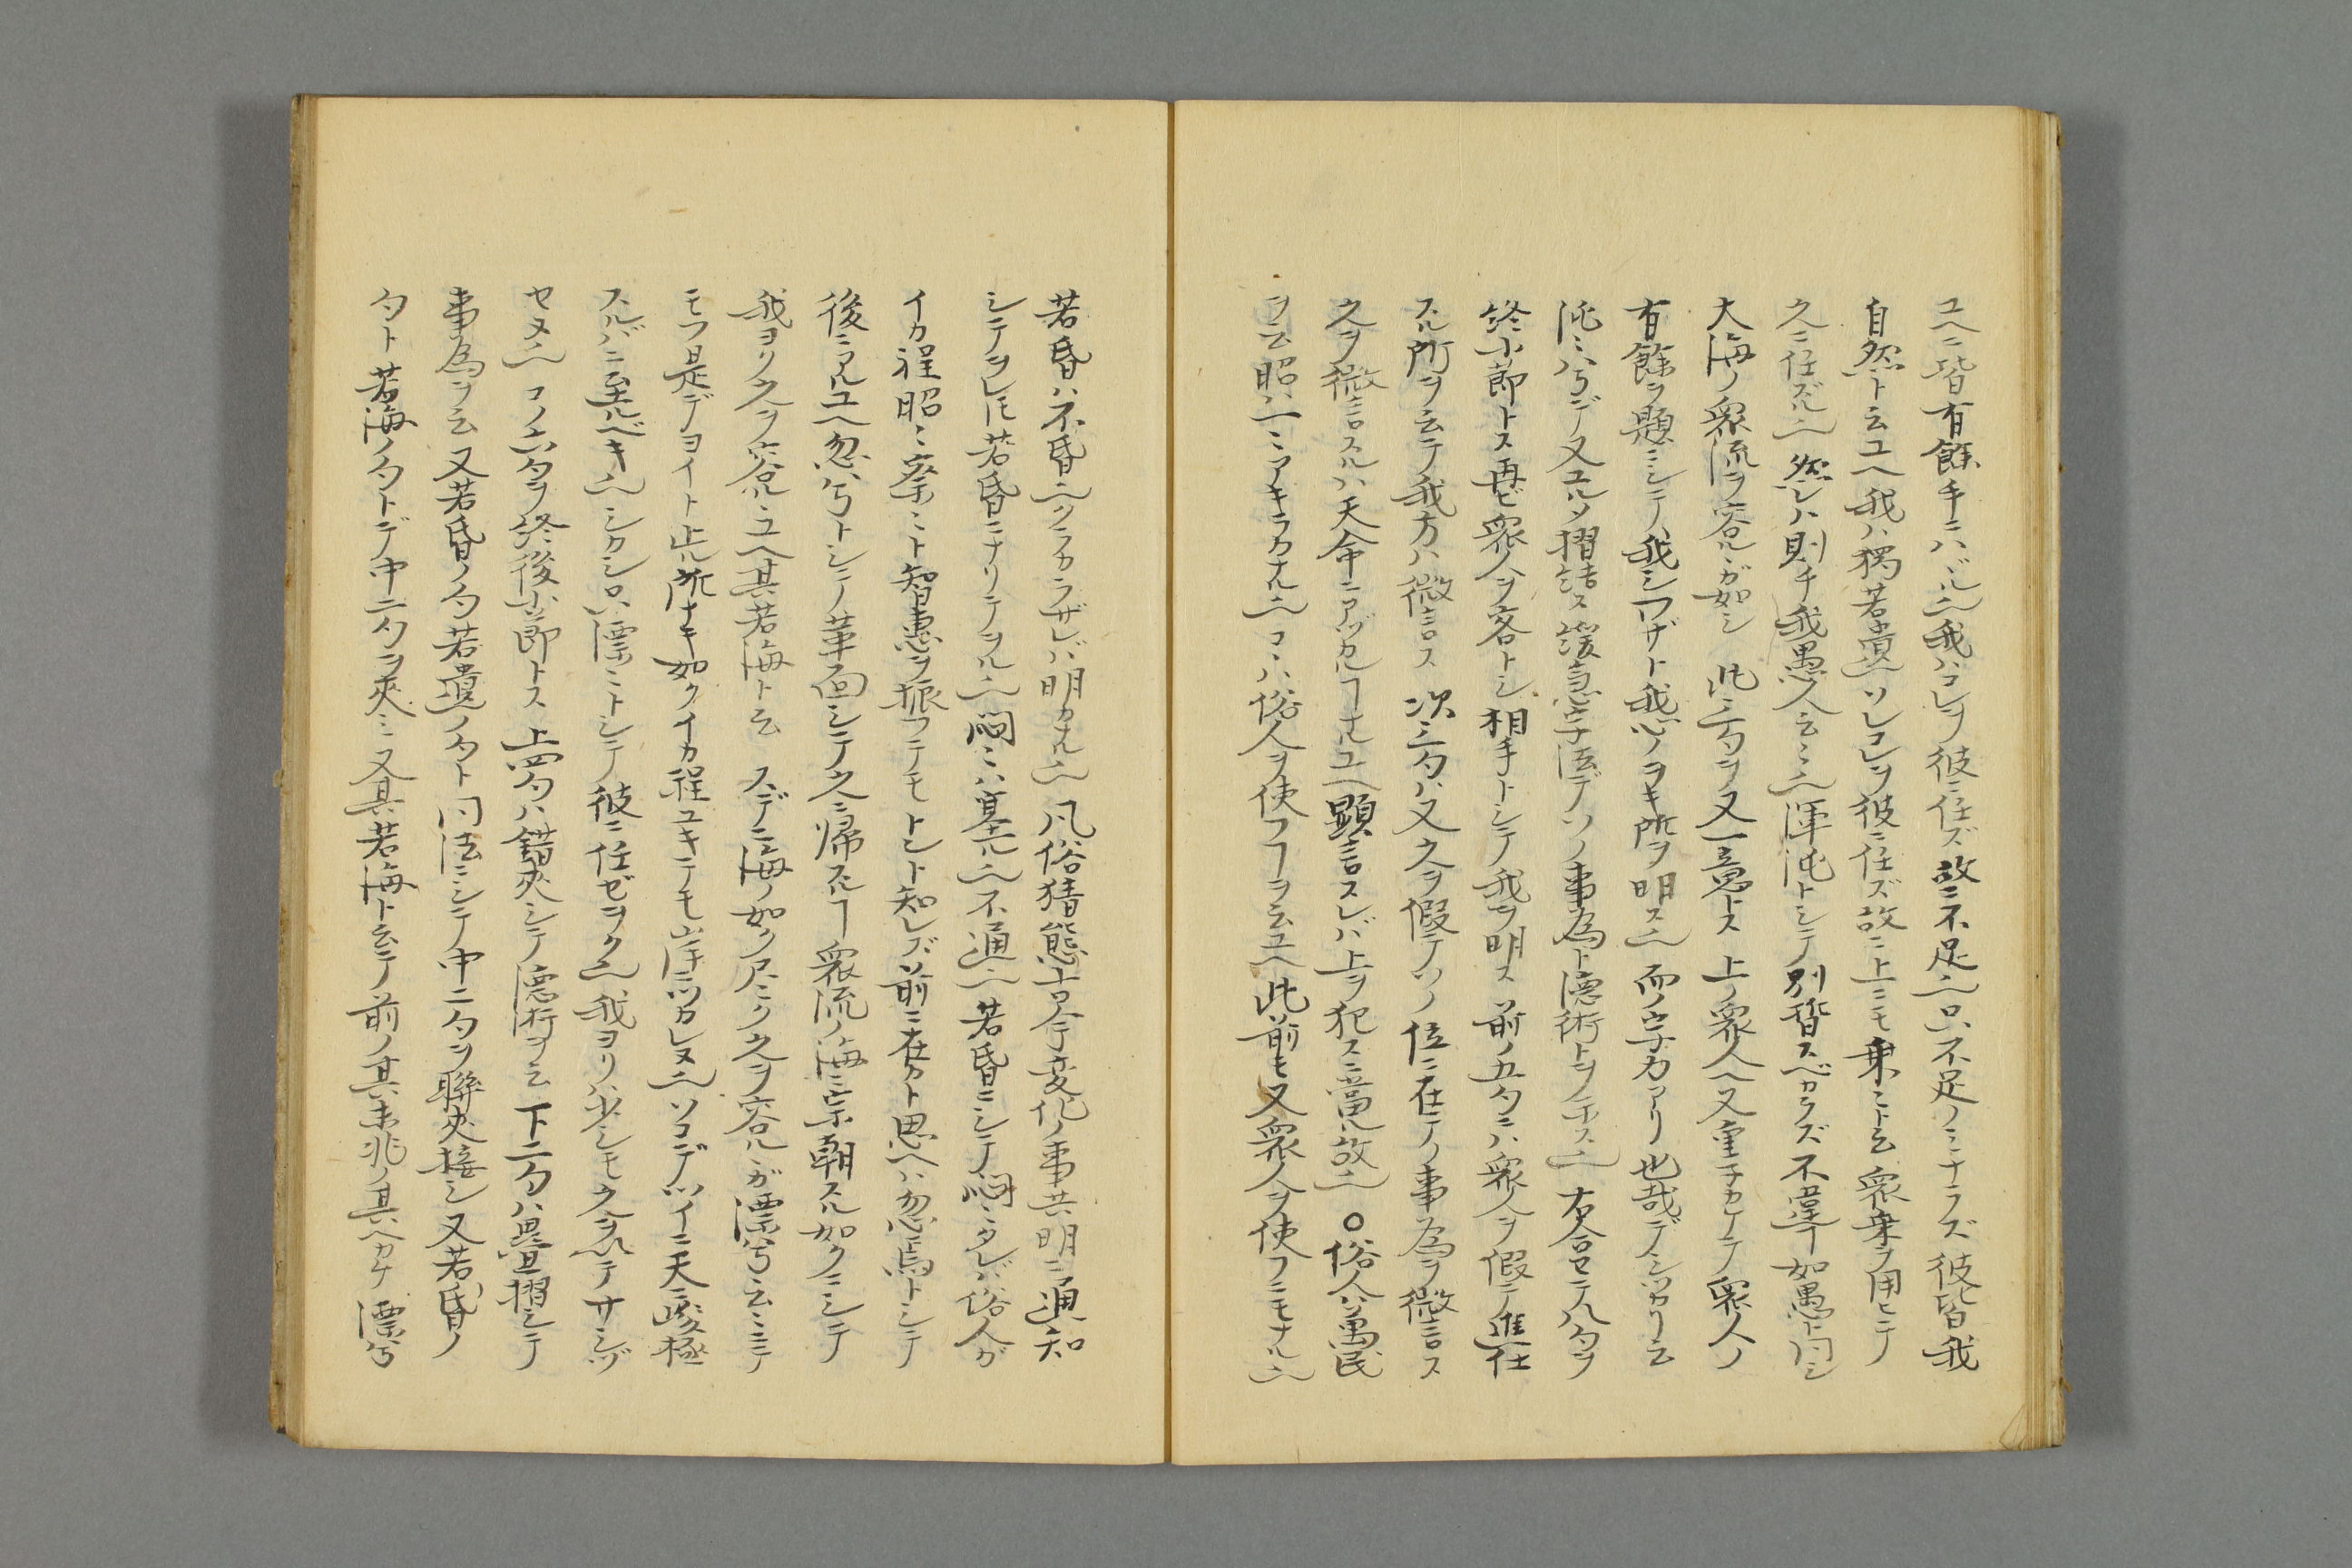 ユヘニ皆有餘手ニハバミ也我ハコレヲ彼ニ任ズ故ニ不足也只不足ノミナラズ彼皆我
自然ト云ユヘ我ハ獨若遺ソレコレヲ彼ニ任ズ故ニ上ニモ乗ミト云衆乗ヲ用ヒテ
之ニ任ズル也然レハ則チ我愚人云ミ也渾沌トシテ別皆スベカラズ不違如愚ト同シ
大海ノ衆流ヲ容ルヽガ如シ此三句ヲ又一意トス上ノ衆人ヘ又重子カケテ衆人ノ
有餘ヲ題ニシテ我シワザト我心ノヲキ所ヲ明ス也而ノ字力アリ也哉デシツカリ云
沌ミ兮デ又ユルメ摺詰ス緩急字法デソノ事為ト德術トヲノ示ス也右合セテ八句ヲ
終小節トス再ビ衆人ヲ客トシ相手トシテ我ヲ明ス前ノ五句ニハ衆人ヲ假テ進仕
スル所ヲ云テ我方ハ微言ス次三句ハ又之ヲ假テソノ位ニ在テノ事為ヲ微言ス
之ヲ微言スルハ天命ニアヅカルヿナルユヘ顕言スレバ上ヲ犯スニ當ル故也〇俗人ハ萬民
ヲ云昭ハ一ミアキラカナル也コヽハ俗人ヲ使フヿヲ云ユヘ此前モ又衆人ヲ使フニモナル也
若昏ハ不昏也クラカラザレバ明カナル也凡俗猜態吉凶変化ノ事共明ニ通知
シテヲレ𪜈若昏ニナリテヲル也悶ミハ塞ル也不通也若昏ニシテ悶ミタレバ俗人ガ
イカ程昭ミ察ミト智惠ヲ振フテモトント知レズ前ニ在カト思ヘハ忽焉トシテ
後ニアルユヘ忽兮トシテ革面シテ之ニ帰スルヿ衆流ノ海ニ宗朝スル如クニシテ
我ヨリ之ヲ容ルヽユヘ其若海ト云スデニ海ノ如ク尽ミク之ヲ容ルヽガ漂兮云ミニテ
モフ是デヨイト止ル所ナキ如クイカ程ユキテモ岸ニツカレヌ也ソコデツイニ天ニ峻極
スルバニ至ルベキ也シクシ只漂ミトシテ彼ニ任ゼヲク也我ヨリハ少シモ之ヲ以テサシヅ
セヌ也コノ六句ヲ終後小節トス上四句ハ錯夾シテ德術ヲ云下二句ハ畳摺シテ
事為ヲ云又若昏ノ句若遺ノ句ト同法ニシテ中二句ヲ聯夾接シ又若昏ノ
句ト若海ノ句トデ中二句ヲ夾ミ又其若海ト云テ前ノ其未兆ノ其ヘカケ漂兮